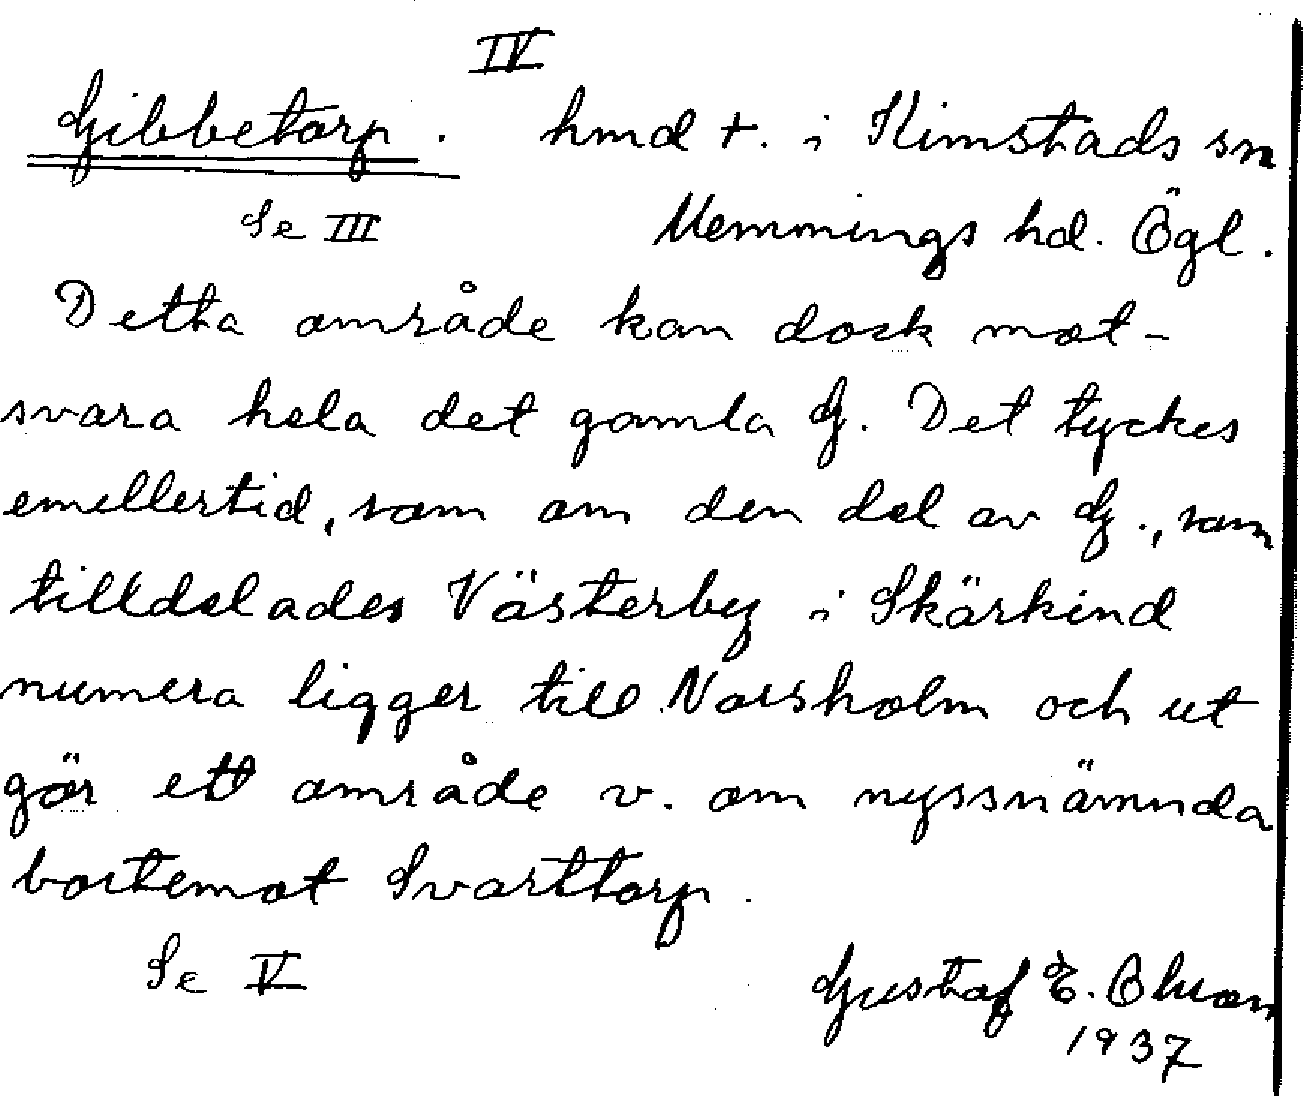 IV
Gibbetorp. hmd +. i Kimstads sn
Se III Memmings hd. Ögl.
Detta område kan dock mot-
svara hela det gamla G. Det tyckes
emellertid, som om den del av G., som
tilldelades Västerby i Skärkind
numera ligger till Norsholm och ut
gör ett område v. om nyssnämnda
bortemot Svarttorp.
Se V Gustaf E.
1937